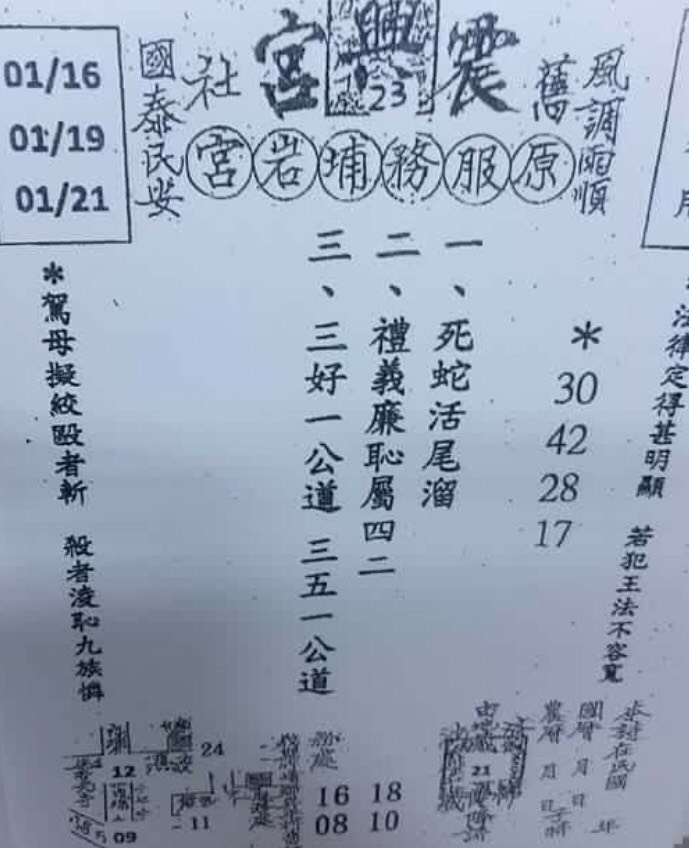 震興宮
23
舊
社
風調雨順
國泰民安
原服務埔岩宮
01/16
01/19
01/21
法律定得甚明顯
若犯王法不容寬
*
30
42
28
17
一、死蛇活尾溜
二、禮義廉恥屬四二
三、三好一公道 三五一公道
*罵母擬絞毆者斬
殺者凌恥九族憐
國曆 月 日
農曆 月 日
年
21
18
10
16
08
24
12
11
09